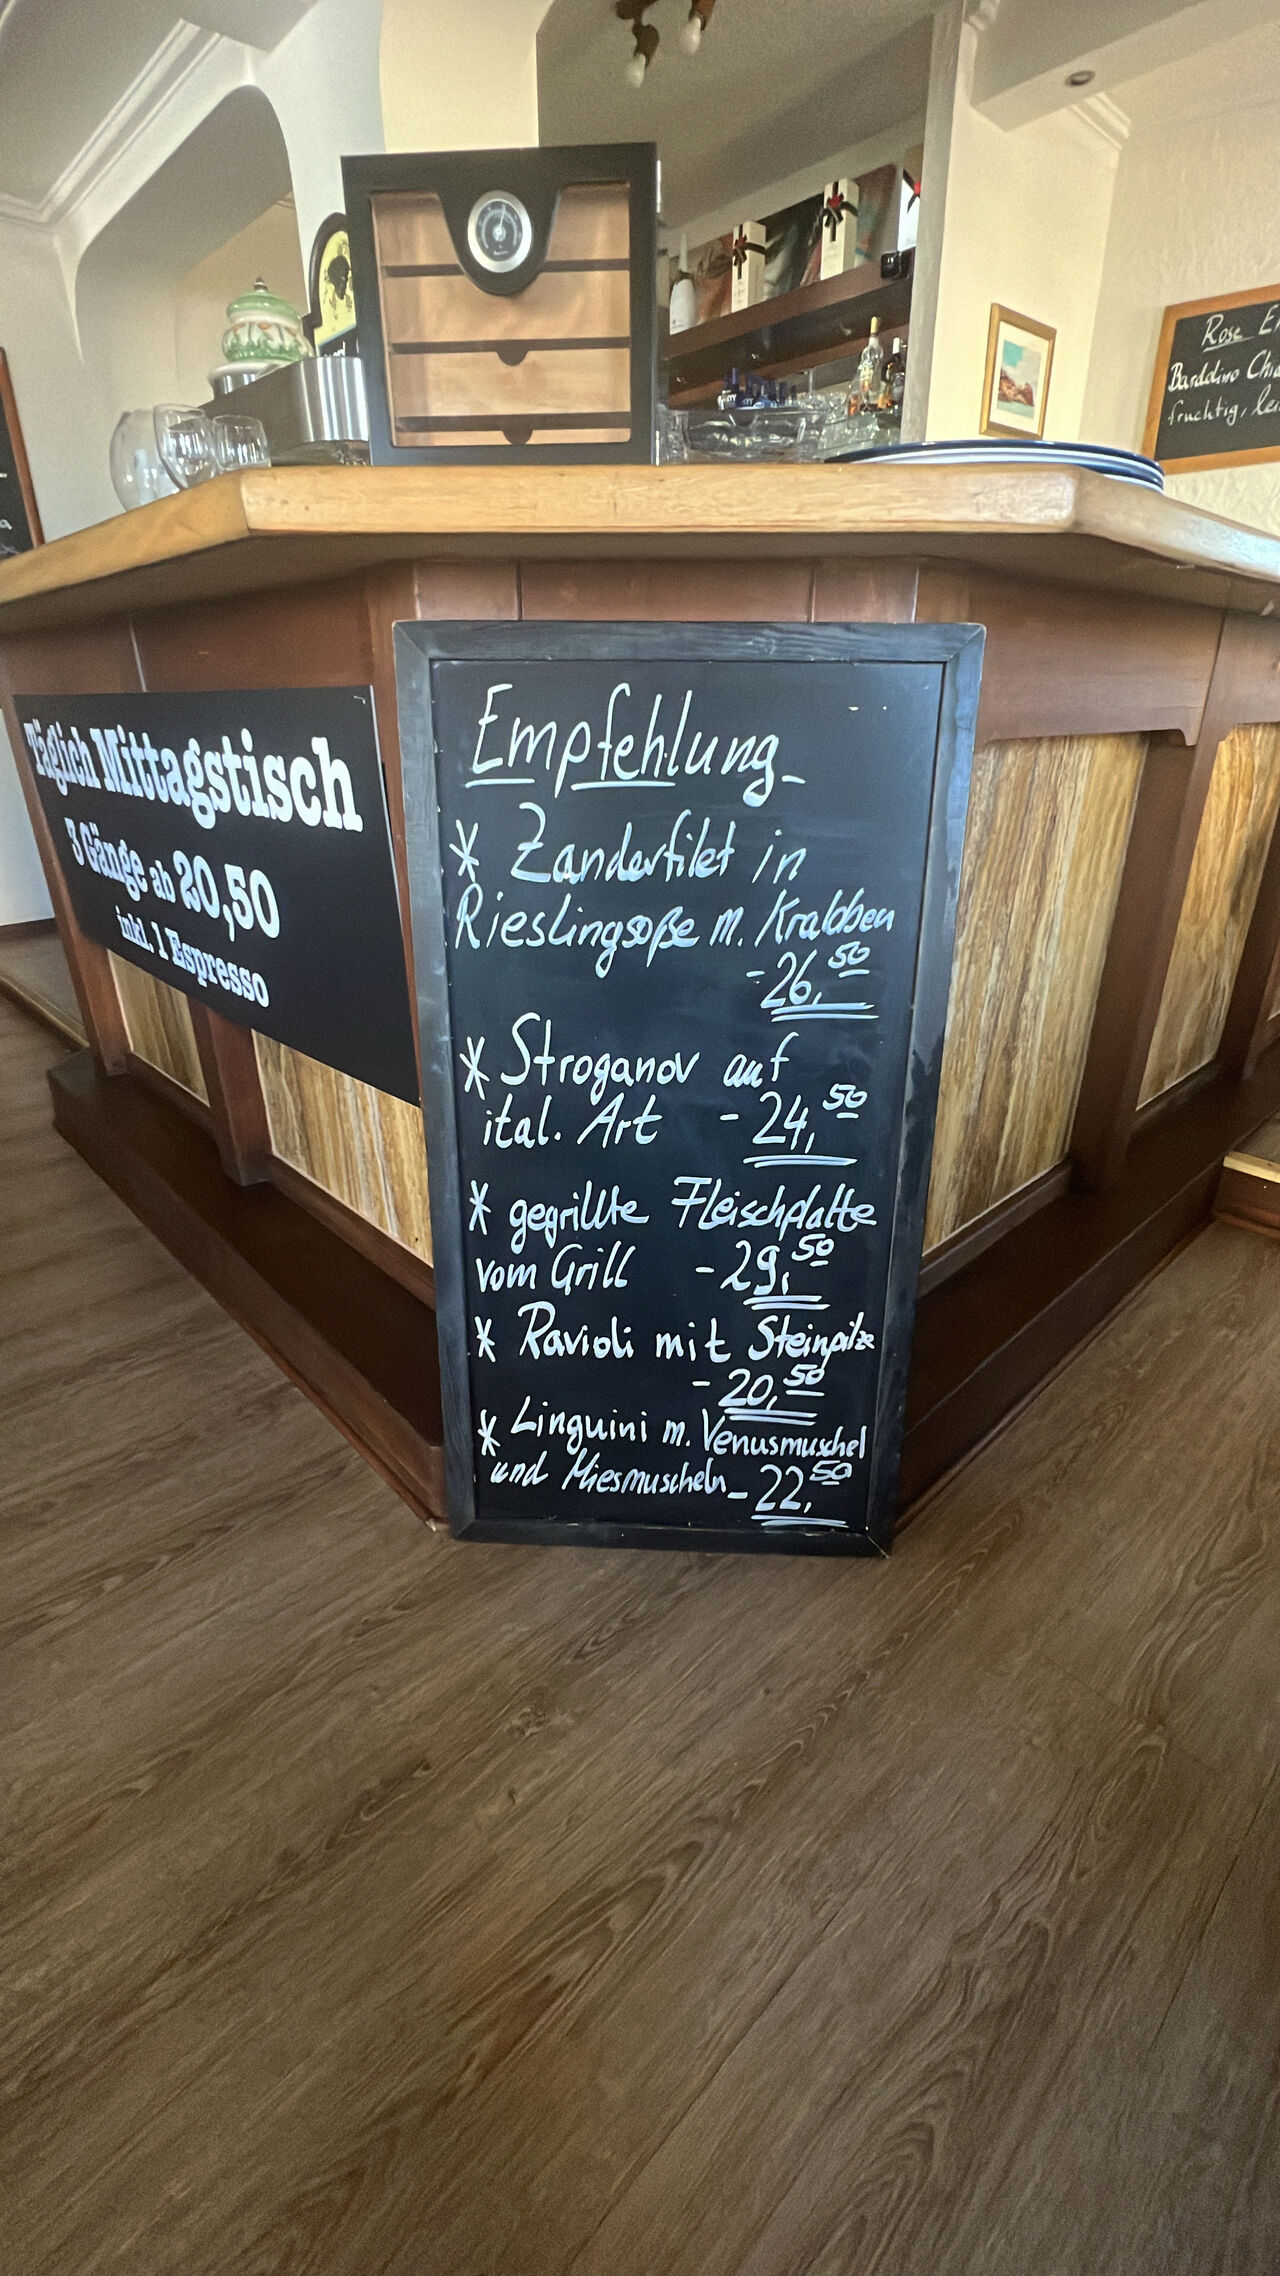 Täglich Mittagstisch
3 Gänge ab 20,50
inkl. 1 Espresso
Empfehlung
* Zanderfilet in
Rieslingsoße m. Krabben
- 26,50
* Stroganov auf
ital. Art - 24,50
* gegrillte Fleischplatte
vom Grill - 29,50
* Ravioli mit Steinpilze
- 20,50
* Linguini m. Venusmuschel
und Miesmuscheln - 22,50
Rose
Barddino
fruchtig,